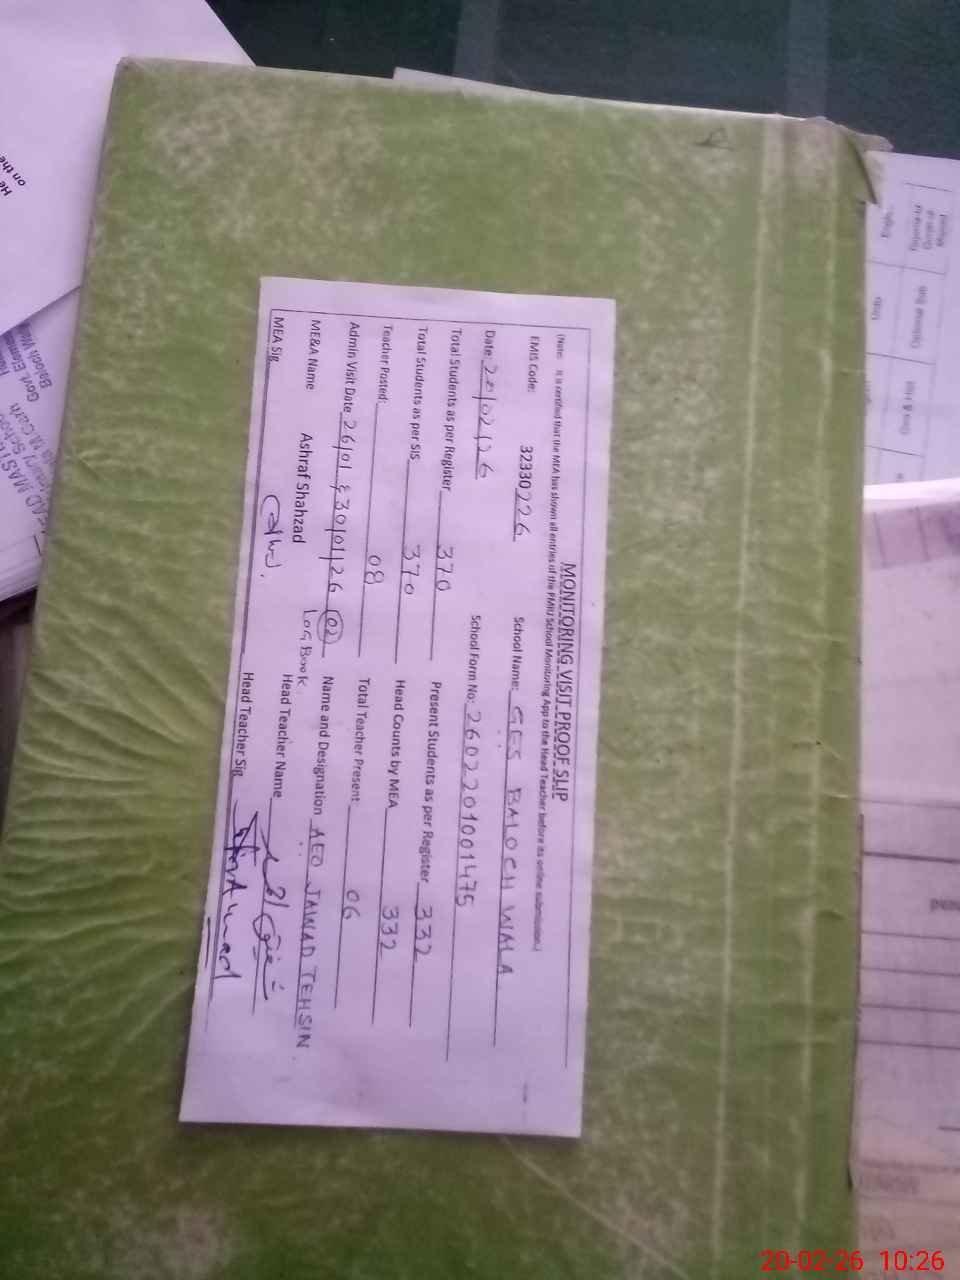 MONITORING VISIT PROOF SLIP
(Note: It is certified that the MEA has shown all entries of the PMIU School Monitoring App to the Head Teacher before its online submission.)
EMIS Code: 32330226 School Name: GES BALOCH WALA
Date 20/02/26 School Form No: 2602201001475
Total Students as per Register 370 Present Students as per Register 332
Total Students as per SIS 370 Head Counts by MEA 332
Teacher Posted: 08 Total Teacher Present: 06
Admin Visit Date 26/01 & 30/01/26 (02) Name and Designation AEO JAWAD TEHSIN.
LOG BOOK.
ME&A Name Ashraf Shahzad Head Teacher Name
MEA Sig Head Teacher Sig
on the
20-02-26 10:26